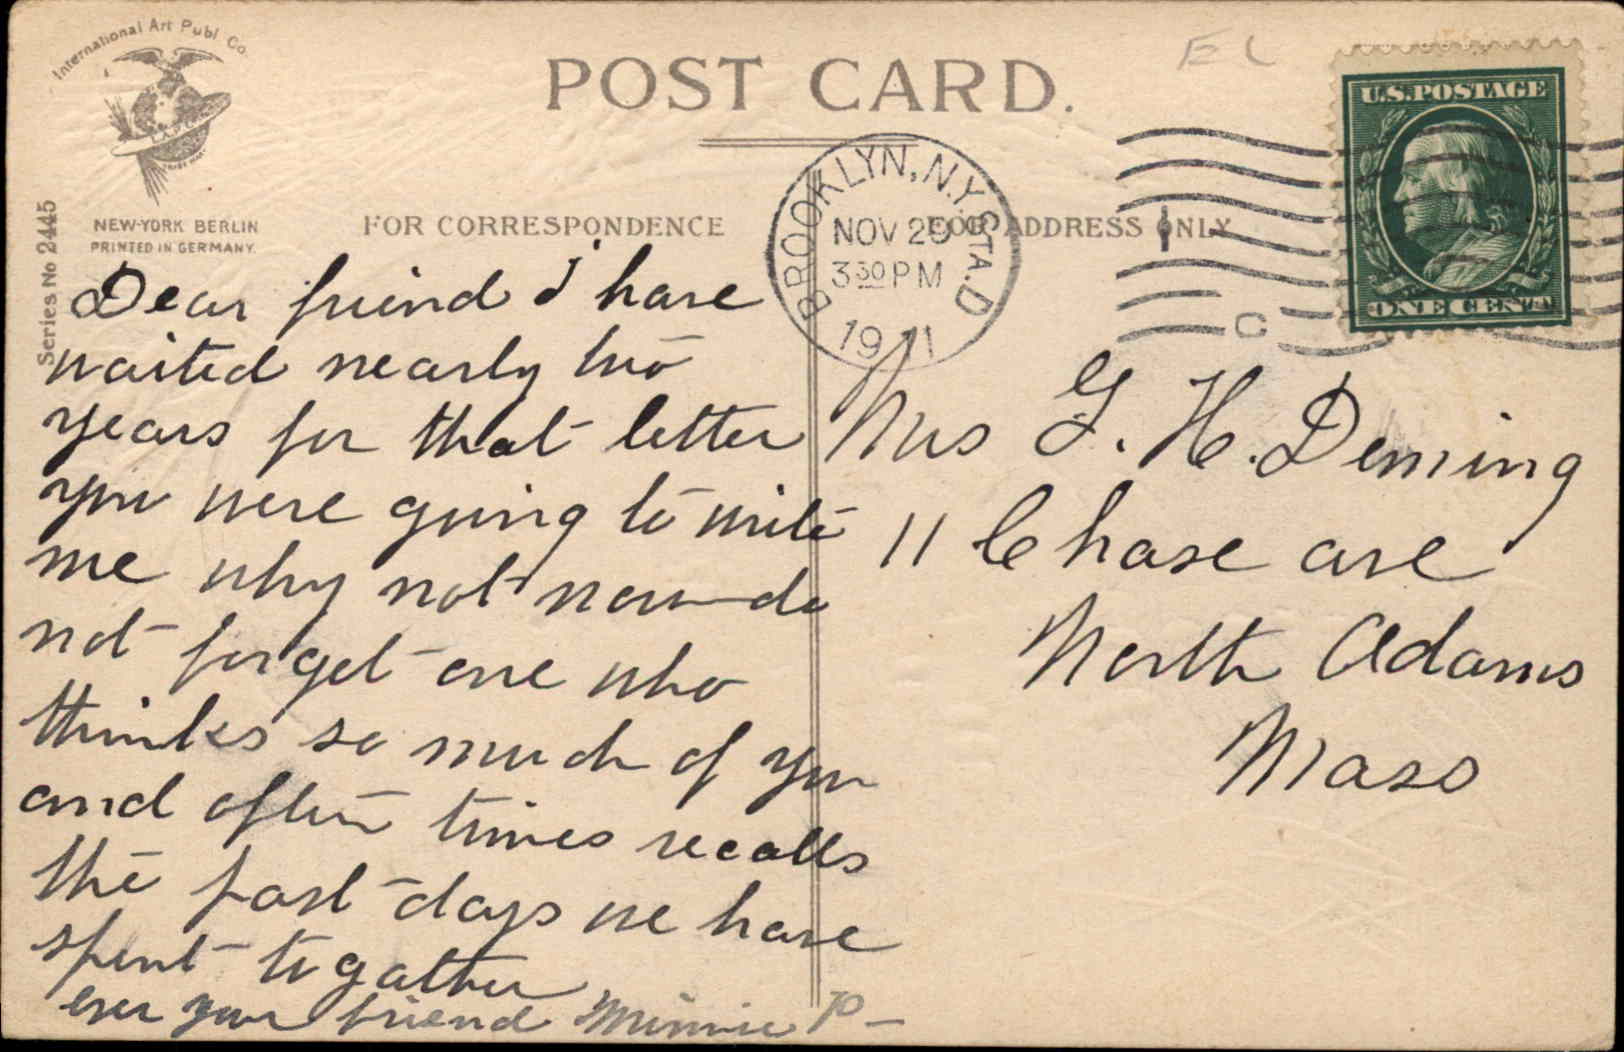 International Art Publ Co.
POST CARD.
E L
U.S. POSTAGE
ONE CENT
BROOKLYN, N.Y. STA. D
NOV 29
3 30 PM
1911
C
Series No 2445
NEW-YORK BERLIN
PRINTED IN GERMANY.
FOR CORRESPONDENCE
FOR ADDRESS ONLY
Dear friend I have
waited nearly two
years for that letter
you were going to write
me why not now do
not forget one who
thinks so much of you
and often times recalls
the past days we have
spent togather
ever your friend Minnie P—
Mrs G. H. Deming
11 Chase ave
North Adams
Mass